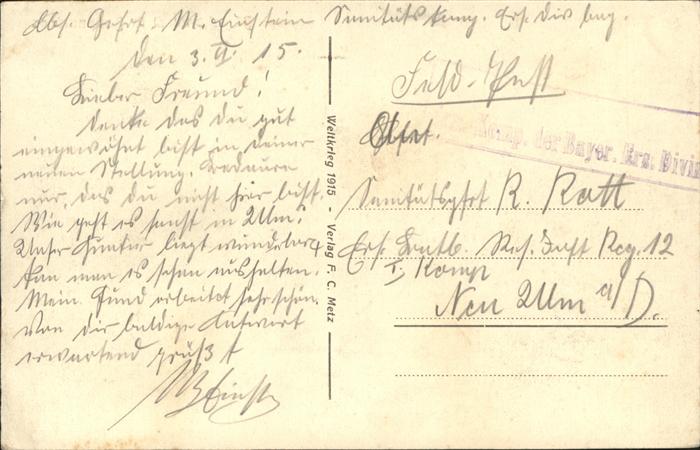 Abs. Gefrt. M. Einstein Sanitäts Komp. Ers. Div bay.
den 3. V. 15.
Lieber Freund!
Denke das du gut
eingewöhnt bist in deiner
neuen Stellung. Bedaure
nur, das du nicht hier bist.
Wie geht es sonst in Ulm?
Unser Quartier liegt wunderbar
kan man es schon aushalten.
Mein Hund arbeitet sehr schön.
Von dir baldige Antwort
erwartend grüßt
M Einst
Weltkrieg 1915 - Verlag F. C. Metz
Feld-Post
Komp. der Bayer. Ers. Divi
Sanitätsgfrt R. Katt
Ers. Res. Inft Reg. 12
I Komp
Neu Ulm a/D.